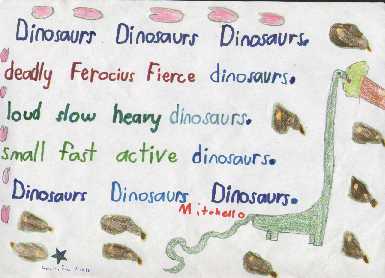 Dinosaurs Dinosaurs Dinosaurs.
deadly Ferocius Fierce dinosaurs.
loud slow heavy dinosaurs.
small fast active dinosaurs.
Dinosaurs Dinosaurs Dinosaurs.